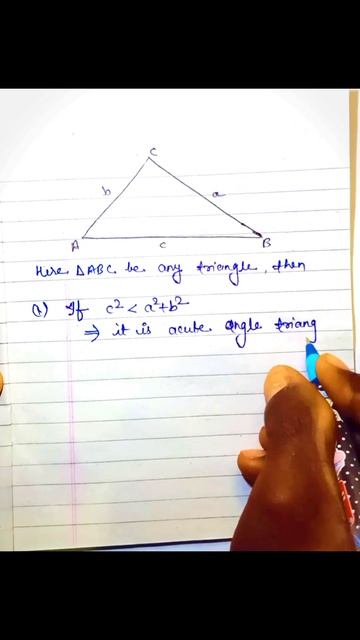 C
b a
A c B
Here ΔABC be any triangle, then
(1) If c² < a²+b²
⇒ it is acute angle triang